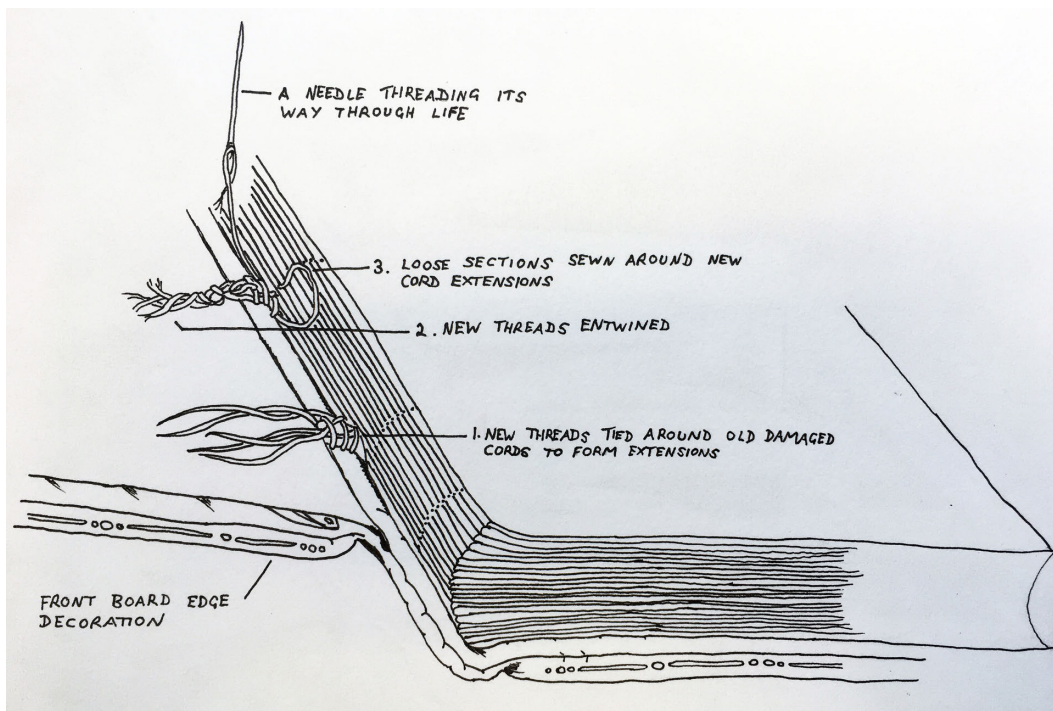 A NEEDLE THREADING ITS
WAY THROUGH LIFE
3. LOOSE SECTIONS SEWN AROUND NEW
CORD EXTENSIONS
2. NEW THREADS ENTWINED
1. NEW THREADS TIED AROUND OLD DAMAGED
CORDS TO FORM EXTENSIONS
FRONT BOARD EDGE
DECORATION